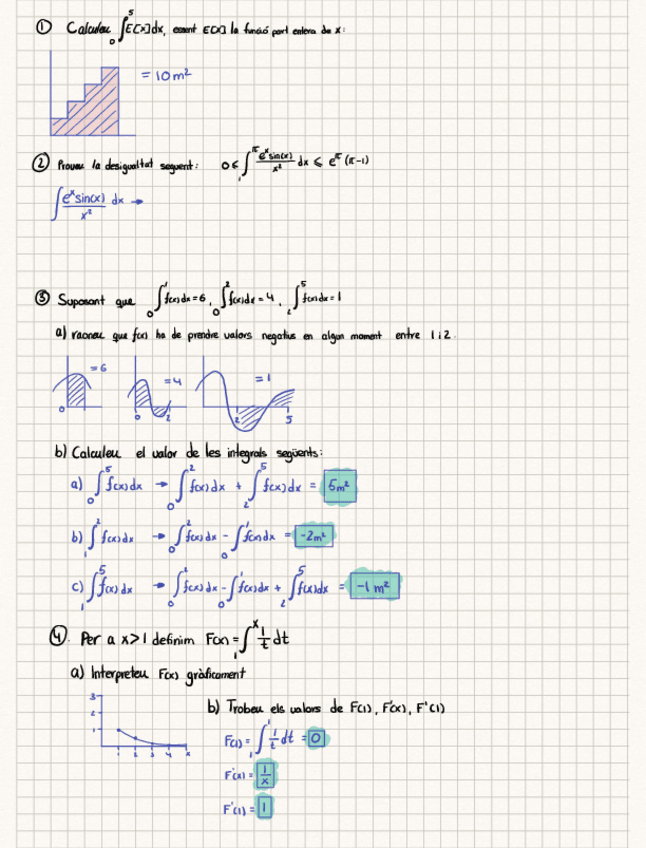 ① Calculeu ∫₀⁵ E[x]dx, essent E[x] la funció part entera de x:
= 10 m²
② Proveu la desigualtat seguent: 0 ≤ ∫₁^π eˣsin(x)/x² dx ≤ e^π (π-1)
∫ eˣsin(x)/x² dx →
③ Suposant que ∫₀¹ f(x)dx = 6, ∫₀² f(x)dx = 4, ∫₂⁵ f(x)dx = 1
a) raoneu que f(x) ha de prendre valors negatius en algun moment entre 1 i 2.
= 6 = 4 = 1
0 0 2 2 5
b) Calculeu el valor de les integrals següents:
a) ∫₀⁵ f(x)dx → ∫₀² f(x)dx + ∫₂⁵ f(x)dx = 5m²
b) ∫₁² f(x)dx → ∫₀² f(x)dx - ∫₀¹ f(x)dx = -2m²
c) ∫₁⁵ f(x)dx → ∫₀² f(x)dx - ∫₀¹ f(x)dx + ∫₂⁵ f(x)dx = -1 m²
④. Per a x>1 definim F(x) = ∫₁ˣ 1/t dt
a) Interpreteu F(x) gràficament
3
2
1
1 2 3 4
b) Trobeu els valors de F(1), F'(x), F'(1)
F(1) = ∫₁¹ 1/t dt = 0
F'(x) = 1/x
F'(1) = 1